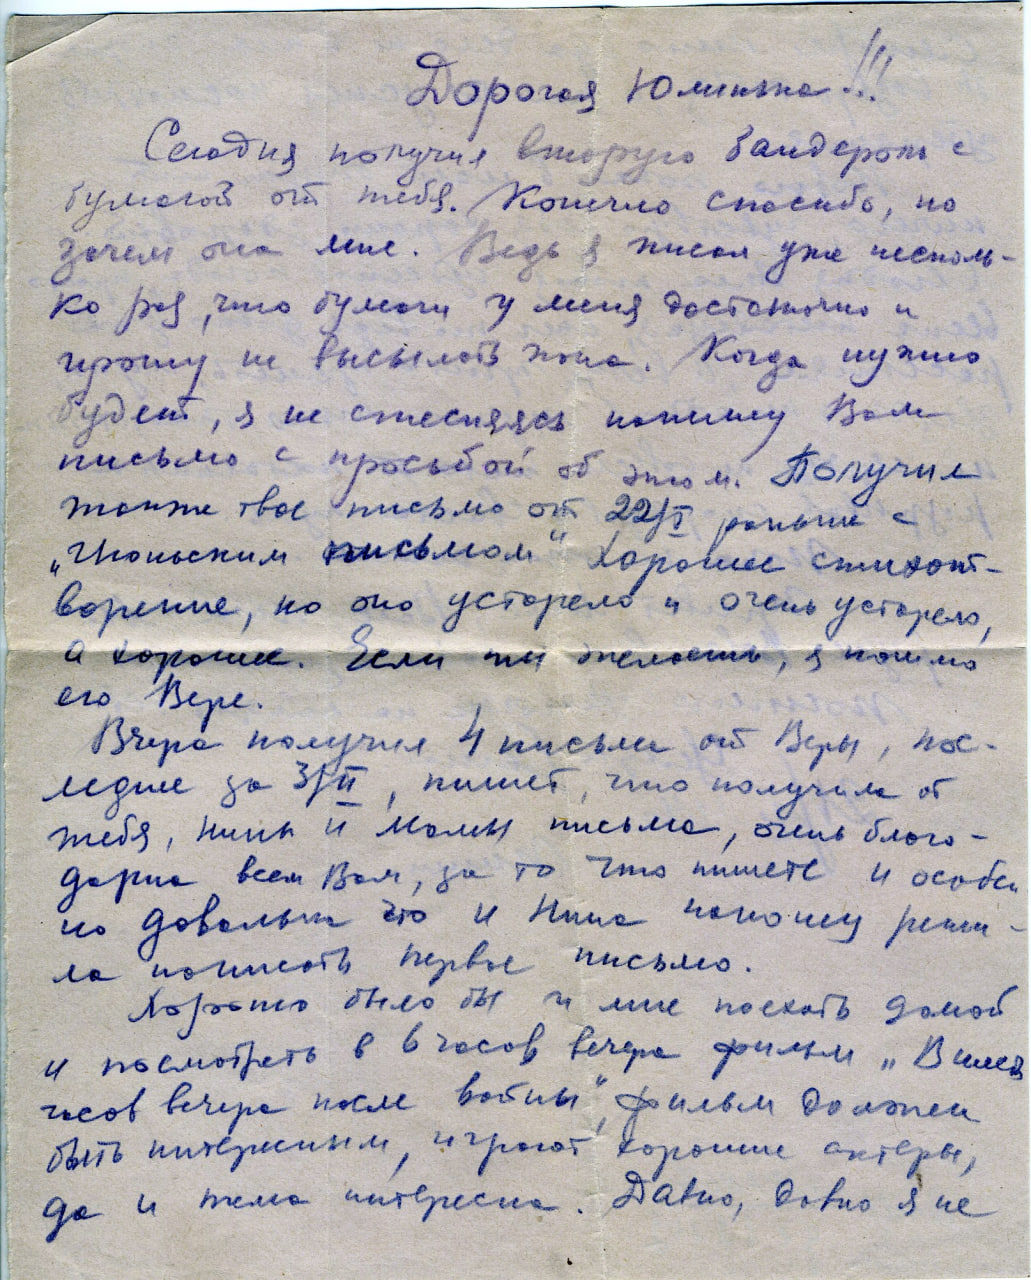 Дорогая Юминька!!!
Сегодня получил вторую бандероль с
бумагой от тебя. Конечно спасибо, но
зачем она мне. Ведь я писал уже несколь-
ко раз, что бумаги у меня достаточно и
прошу не высылать пока. Когда нужно
будет, я не стесняясь напишу Вам
письмо с просьбой об этом. Получил
также твое письмо от 22/I раньше с
„Июньским письмом" хорошее стихот-
ворение, но оно устарело и очень устарело,
а хорошее. Если ты желаешь, я пошлю
его Вере.
Вчера получил 4 письма от Веры, пос-
ледние за 3/II, пишет, что получила от
тебя, Нины и Мамы письма, очень благо-
дарна всем Вам, за то что пишете и особен
но довольна что и Нина наконец реши-
ла написать первое письмо.
Хорошо было бы и мне поехать домой
и посмотреть в 6 часов вечера фильм „В шесть
часов вечера после войны", фильм должен
быть интересным, играют хорошие актеры,
да и тема интересна. Давно, давно я не